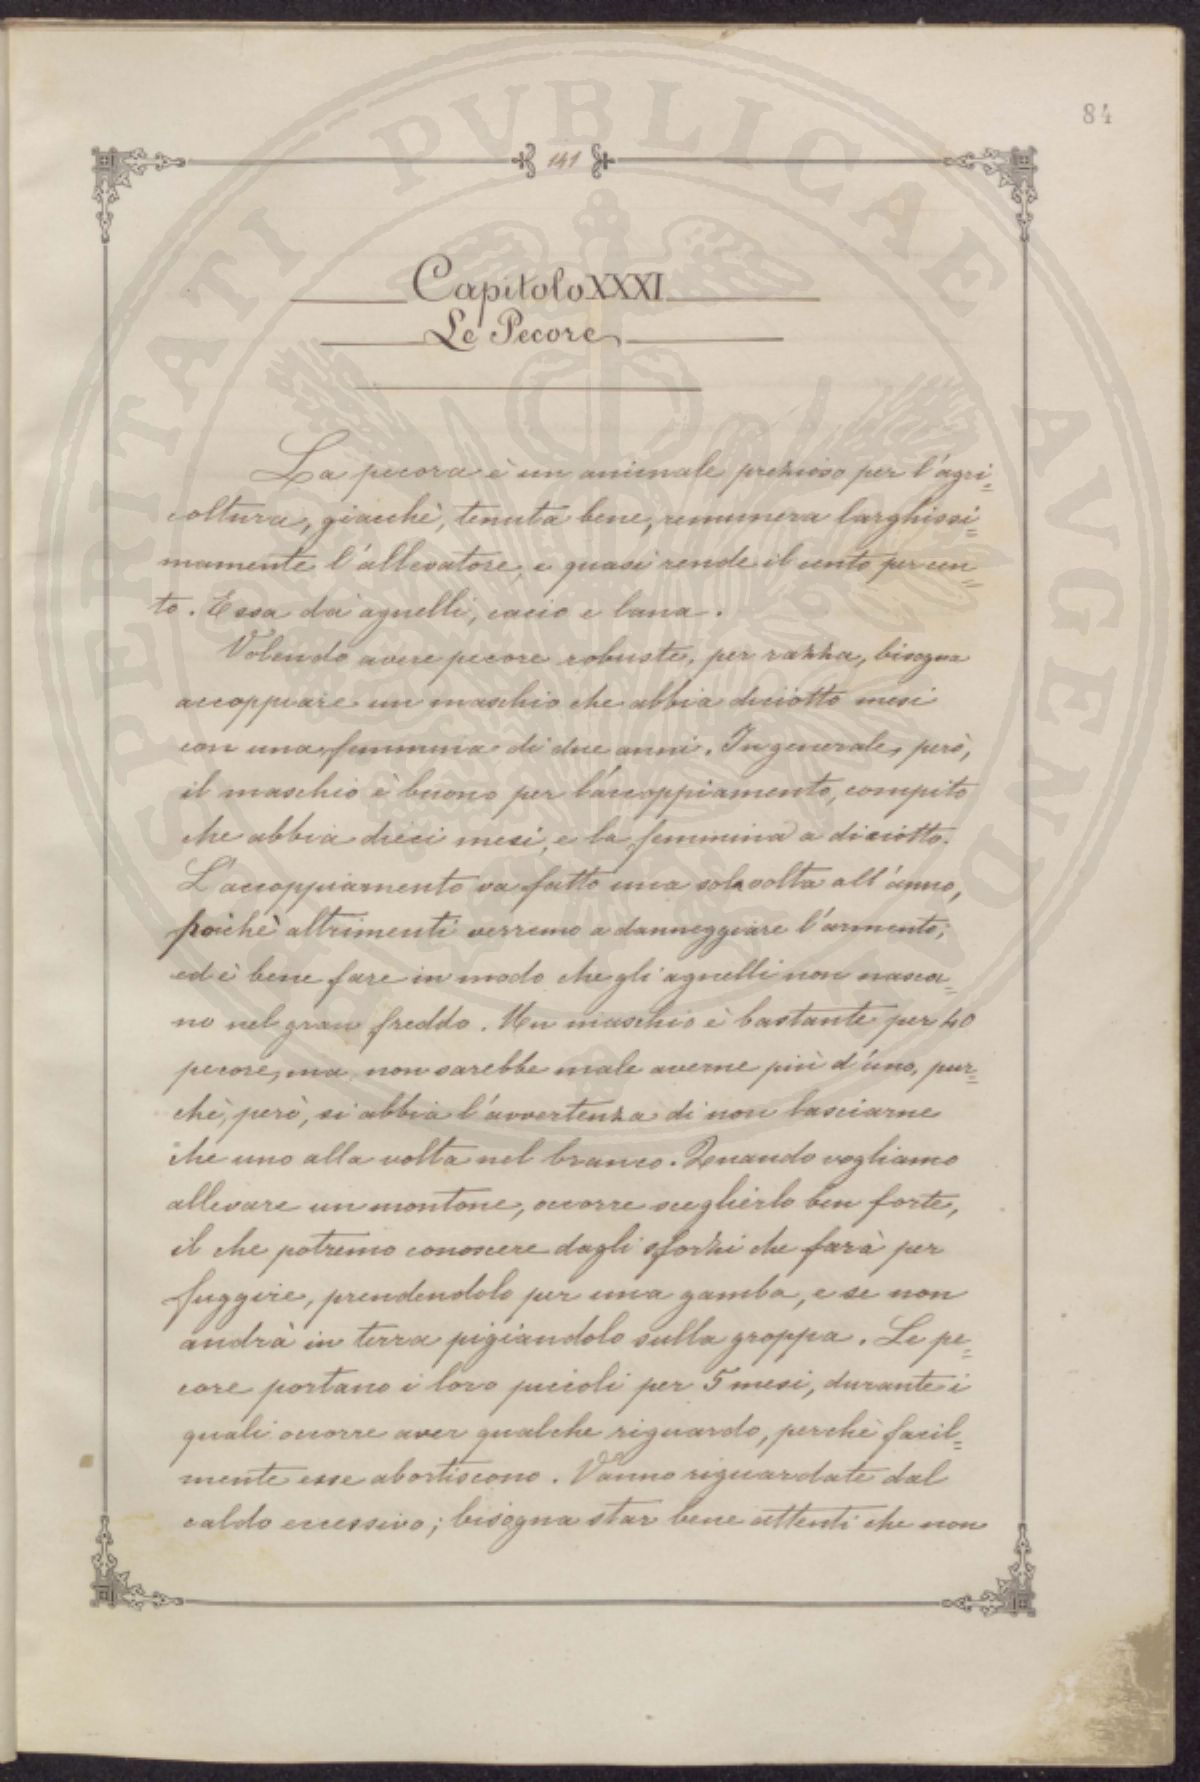 84
141
Capitolo XXXI
Le Pecore
La pecora è un animale prezioso per l'agri=
coltura, giacchè, tenuta bene, remunera larghissi=
mamente l'allevatore, e quasi rende il cento per cen=
to. Essa dà agnelli, cacio e lana.
Volendo avere pecore robuste, per razza, bisogna
accoppiare un maschio che abbia diciotto mesi
con una femmina di due anni. In generale, però,
il maschio è buono per l'accoppiamento, compito
che abbia dieci mesi, e la femmina a diciotto.
L'accoppiamento va fatto una sola volta all'anno,
poichè altrimenti verremo a danneggiare l'armento;
ed è bene fare in modo che gli agnelli non nasca=
no nel gran freddo. Un maschio è bastante per 40
pecore, ma non sarebbe male averne più d'uno, pur=
chè, però, si abbia l'avvertenza di non lasciarne
che uno alla volta nel branco. Quando vogliamo
allevare un montone, occorre sceglierlo ben forte,
il che potremo conoscere dagli sforzi che farà per
fuggire, prendendolo per una gamba, e se non
andrà in terra pigiandolo sulla groppa. Le pe=
core portano i loro piccoli per 5 mesi, durante i
quali occorre aver qualche riguardo, perchè facil=
mente esse abortiscono. Vanno riguardate dal
caldo eccessivo; bisogna star bene attenti che non
SPERITATI PVBLICAE AVGENDAE